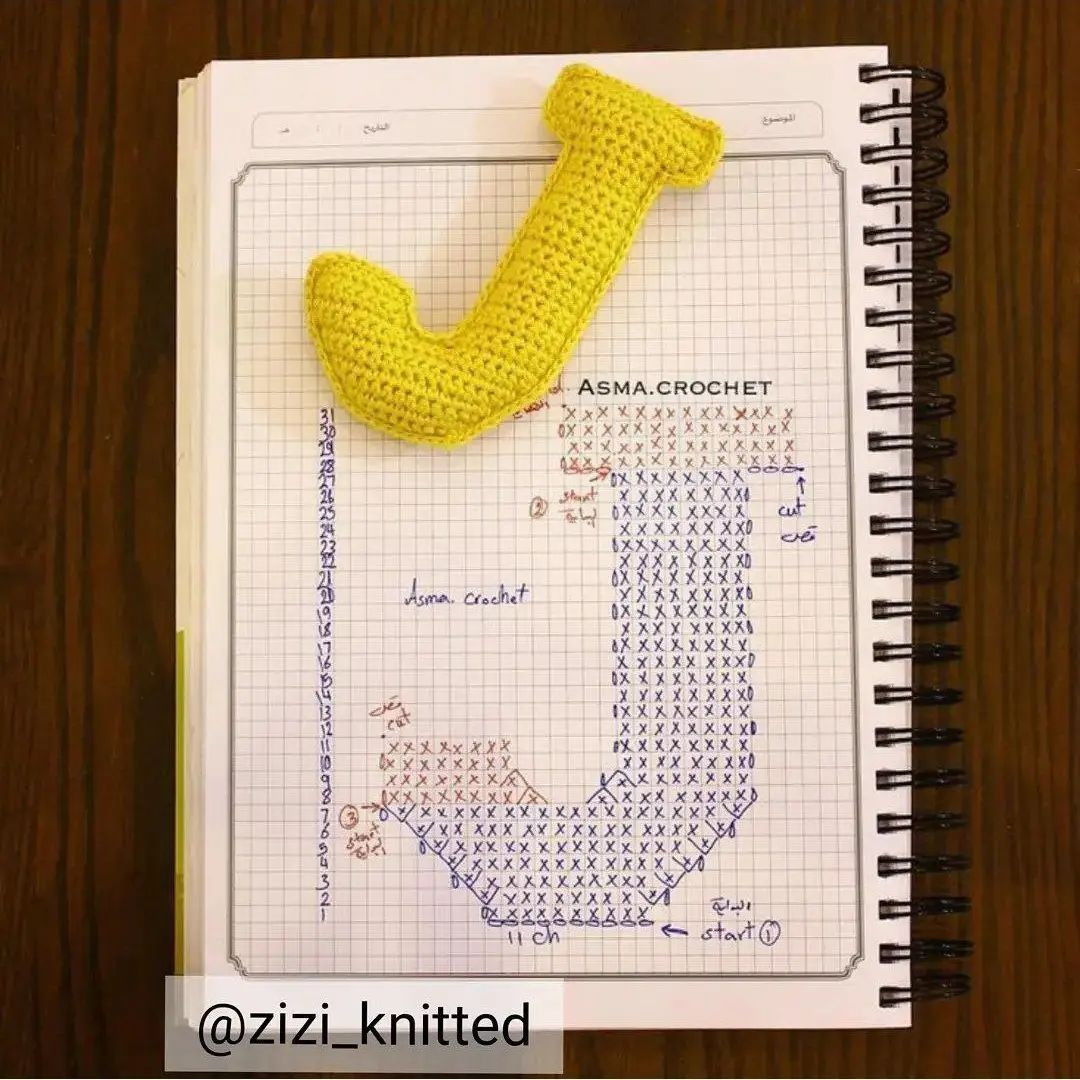 الموضوع
التاريخ / / هـ
ASMA.CROCHET
31
30
29
28
27
26
25
24
23
22
21
20
19
18
17
16
15
14
13
12
11
10
9
8
7
6
5
4
3
2
1
② start
cut
قص
Asma. crochet
قص
cut
③
start
البداية
start ①
11 ch
@zizi_knitted